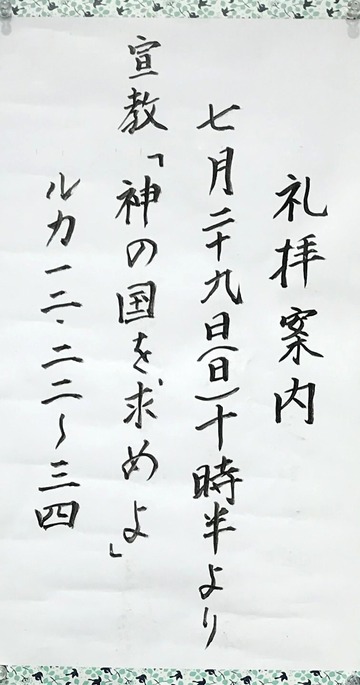 礼拝案内
七月二十九日(日)十時半より
宣教「神の国を求めよ」
ルカ一二・二二～三四